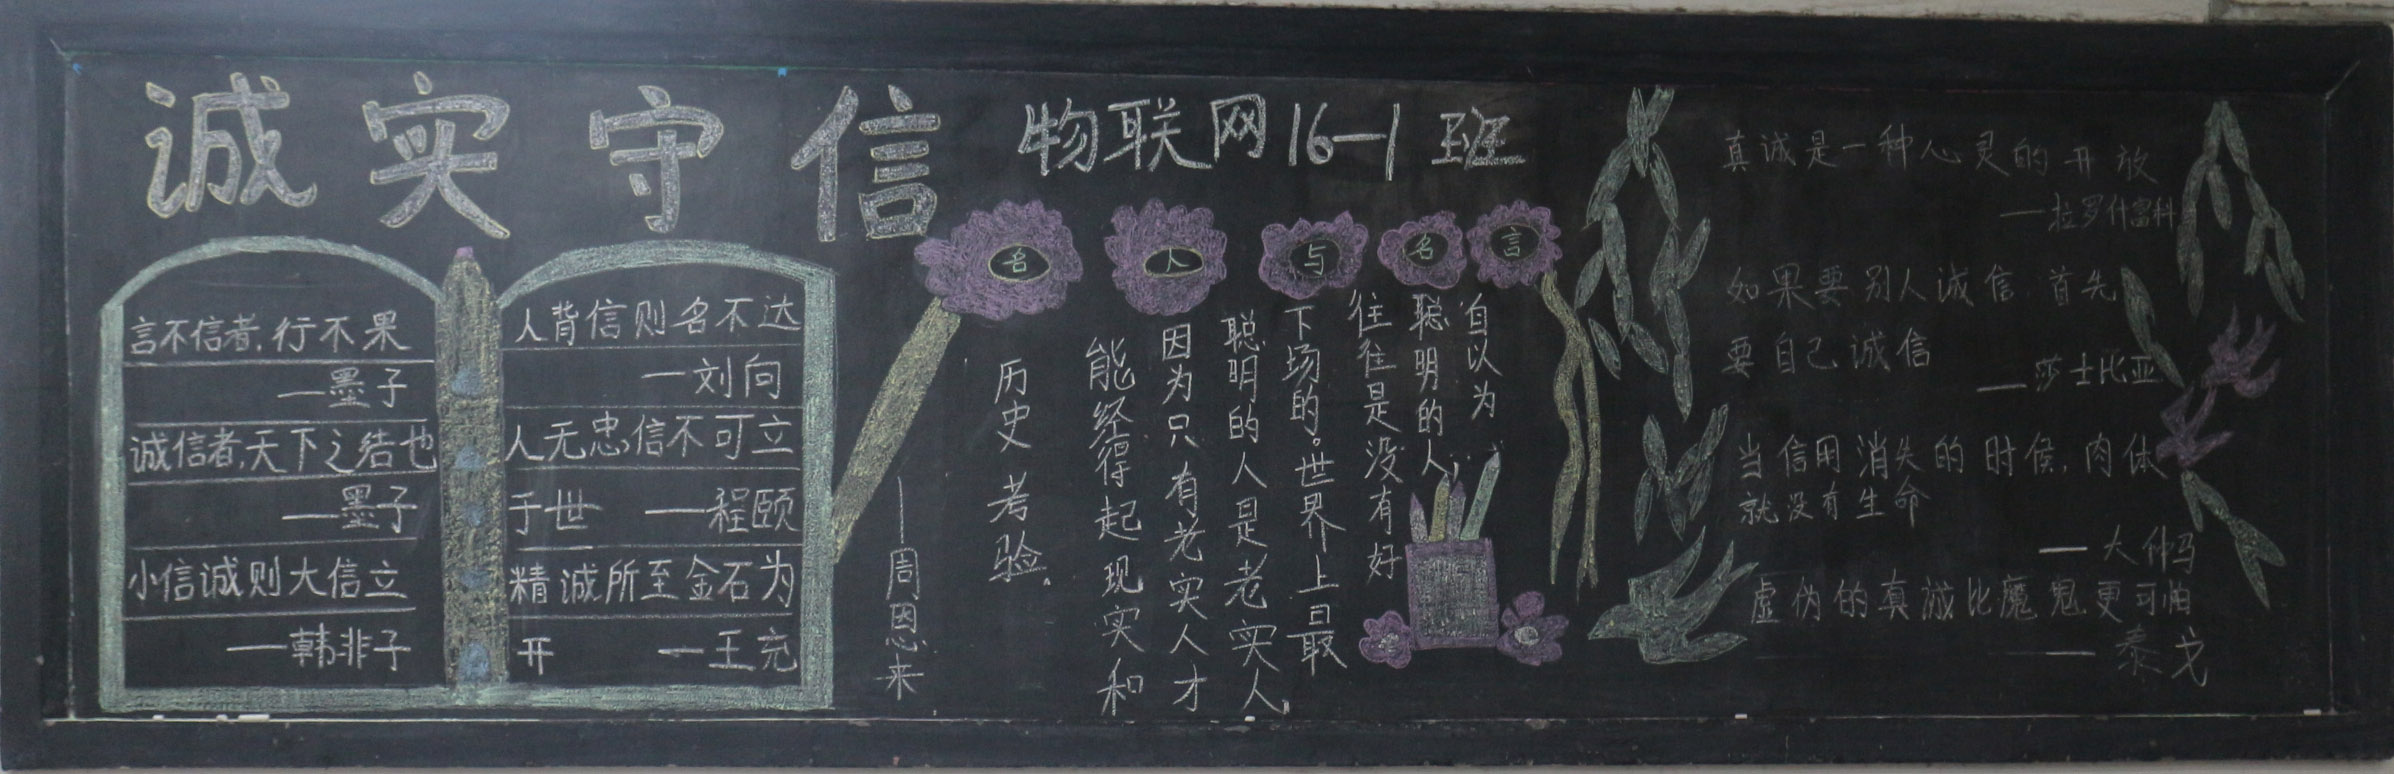 诚实守信
物联网16—1班
言不信者,行不果
—墨子
诚信者,天下之结也
—墨子
小信诚则大信立
—韩非子
人背信则名不达
—刘向
人无忠信不可立
于世 —程颐
精诚所至金石为
开 —王充
名人与名言
自以为
聪明的人,
往往是没有好
下场的。世界上最
聪明的人是老实人
因为只有老实人才
能经得起现实和
历史考验.
—周恩来
真诚是一种心灵的开放
—拉罗什富科
如果要别人诚信,首先
要自己诚信
—莎士比亚
当信用消失的时候,肉体
就没有生命
—大仲马
虚伪的真诚比魔鬼更可怕
—泰戈